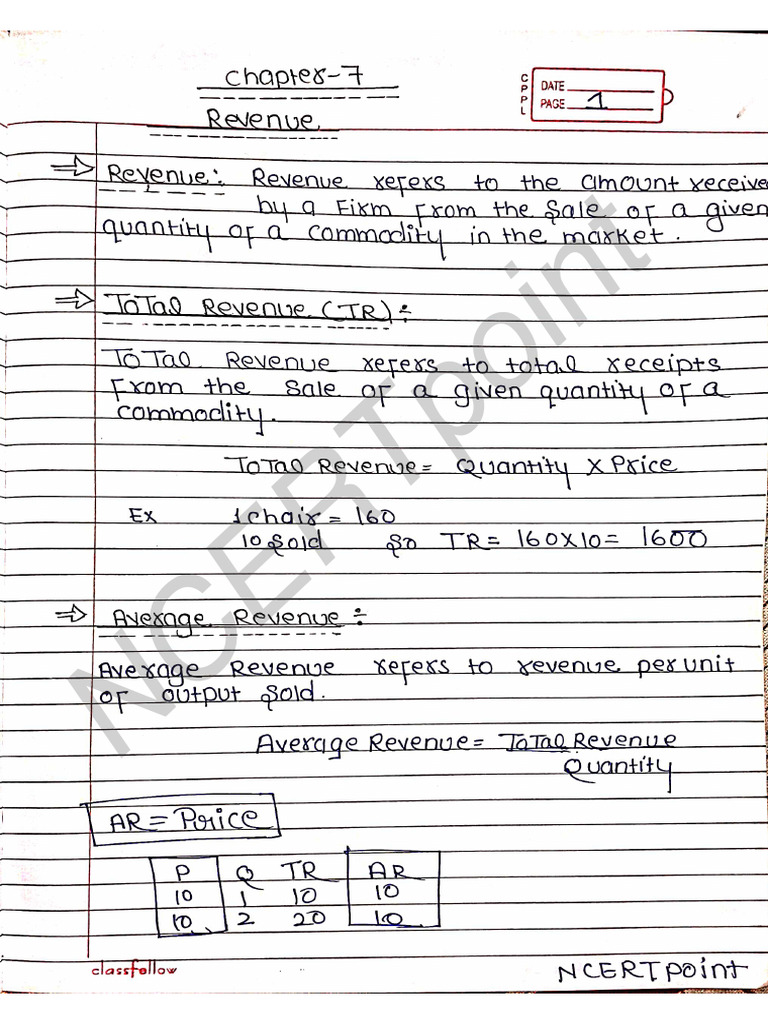 Chapter-7
Revenue
CPPL
DATE
PAGE 1
⇒ Revenue: Revenue refers to the amount receive
by a Firm from the sale of a given
quantity of a commodity in the market.
⇒ Total Revenue (TR) ÷
Total Revenue refers to total receipts
from the sale of a given quantity of a
commodity.
Total Revenue = Quantity X Price
Ex 1 chair = 160
10 sold So TR = 160X10 = 1600
⇒ Average Revenue ÷
Average Revenue refers to revenue per unit
of output sold.
Average Revenue = Total Revenue
Quantity
AR = Price
P Q TR AR
10 1 10 10
10 2 20 10
classfollow
NCERTpoint
NCERTpoint